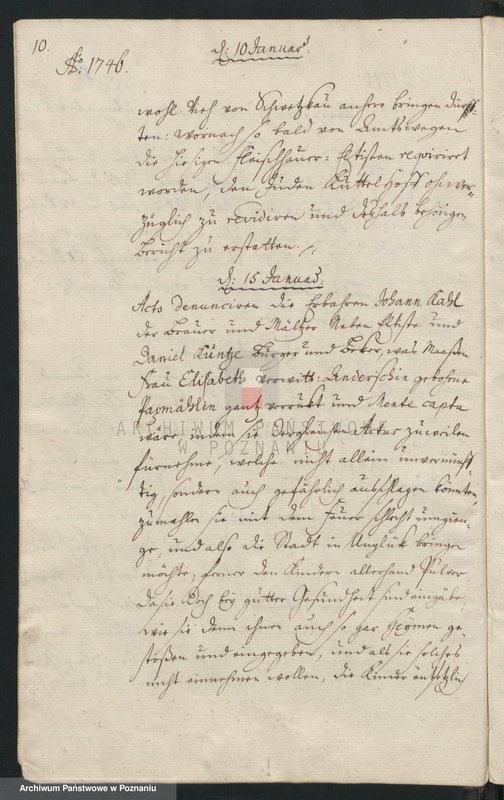 10.
Ao: 1746.
d: 10 Januar:
wohl Vieh von Schwetzkau anhero bringen dürff-
ten: wornach so bald von Amtswegen
die hiesigen Fleischhauer-Eltisten requiriret
worden, den Juden Kuttelhoff ohnver-
züglich zu revidiren und deshalb behörigen
Bericht zu erstatten.
d: 15 Januar.
Acto denunciren die Erbahren Johann Kahl
der Breuer und Mältzer Neben Eltiste und
Daniel Kuntze Bürger und Becker, was Maaßen
Frau Elisabeth verwitt: Anderschin gebohrne
gantz verrükt und Mente capta
wäre, indem sie dergleichen Actus zuweilen
fürnehme, welche nicht allein unvernünff-
tig, sondern auch gefährlich ausschlagen könnten,
zumahlen sie mit dem Feuer schlecht umgien-
ge, und also die Stadt in Unglük bringen
möchte; ferner den Kindern allerhand Pulver
da sie doch bey gutter Gesundheit sind eingäbe,
wie sie denn ihnen auch so gar ge-
stoßen und eingegeben, und als sie solches
nicht einnehmen wollen, die Kinder entsetzlich
ARCHIWUM PAŃSTWOWE
W POZNANIU
Archiwum Państwowe w Poznaniu